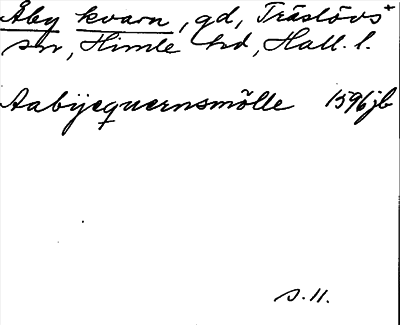 Åby kvarn, gd, Träslövs
sn, Himle hd, Hall. l.
Aabyequernsmölle 1596 jb
s. 11.